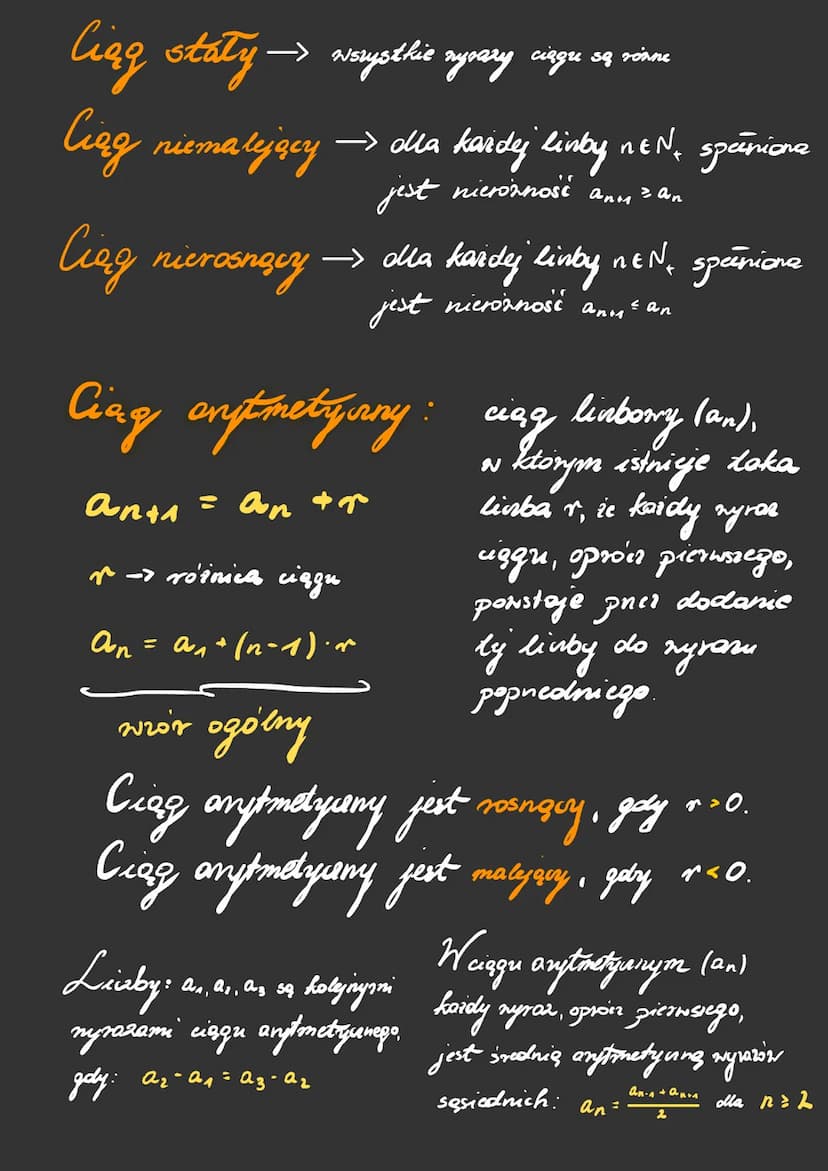 Ciąg stały → wszystkie wyrazy ciągu są równe
Ciąg niemalejący → dla każdej liczby n∈N₊ spełniona
jest nierówność aₙ₊₁ ≥ aₙ
Ciąg nierosnący → dla każdej liczby n∈N₊ spełniona
jest nierówność aₙ₊₁ ≤ aₙ
Ciąg arytmetyczny:
aₙ₊₁ = aₙ + r
r → różnica ciągu
aₙ = a₁ + (n-1) · r
wzór ogólny
ciąg liczbowy (aₙ),
w którym istnieje taka
liczba r, że każdy wyraz
ciągu, oprócz pierwszego,
powstaje przez dodanie
tej liczby do wyrazu
poprzedniego.
Ciąg arytmetyczny jest rosnący, gdy r > 0.
Ciąg arytmetyczny jest malejący, gdy r < 0.
Liczby: a₁, a₂, a₃ są kolejnymi
wyrazami ciągu arytmetycznego,
gdy: a₂ - a₁ = a₃ - a₂
W ciągu arytmetycznym (aₙ)
każdy wyraz, oprócz pierwszego,
jest średnią arytmetyczną wyrazów
sąsiednich: aₙ = (aₙ₋₁ + aₙ₊₁)/2 dla n ≥ 2